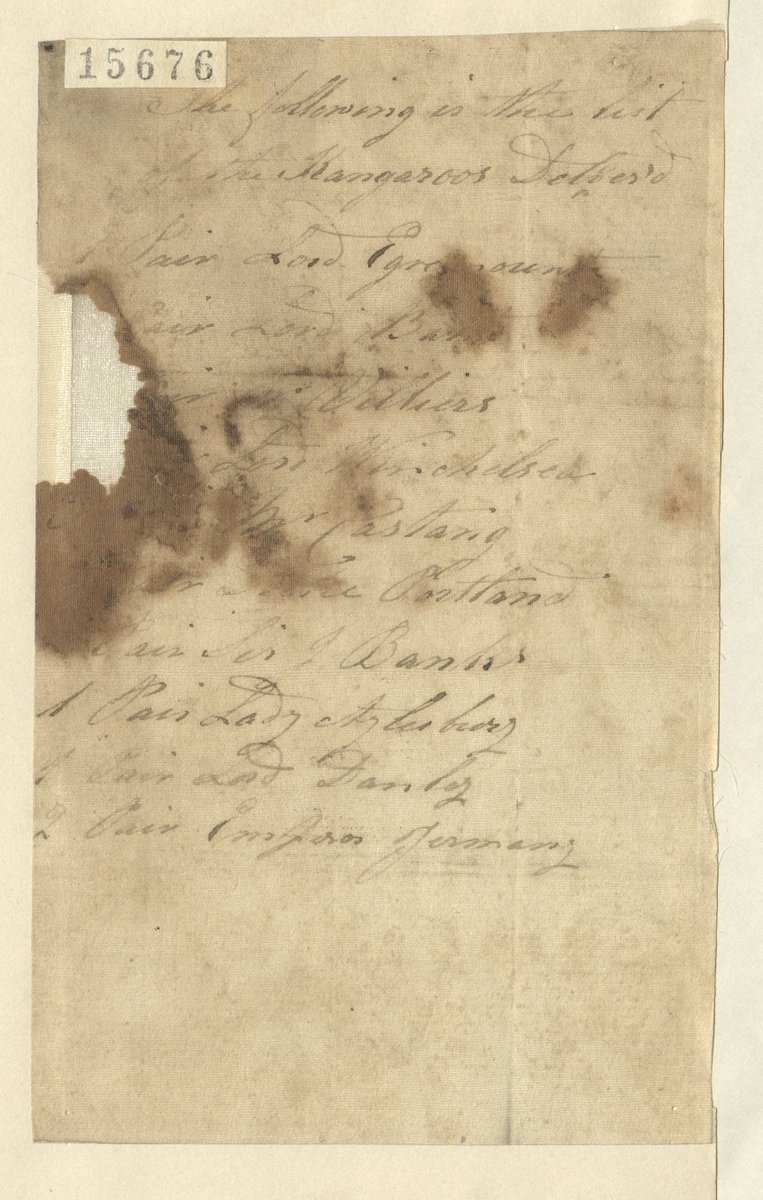 15676
The following is the list
of the Kangaroos Deliver'd
1 Pair Lord Egremount
Pair Lord
Williers
Winchelsea
Mr Castang
Portland
Pair Sir J Banks
1 Pair Lady Aylesbury
1 Pair Lord Danley
2 Pair Emperor Germany